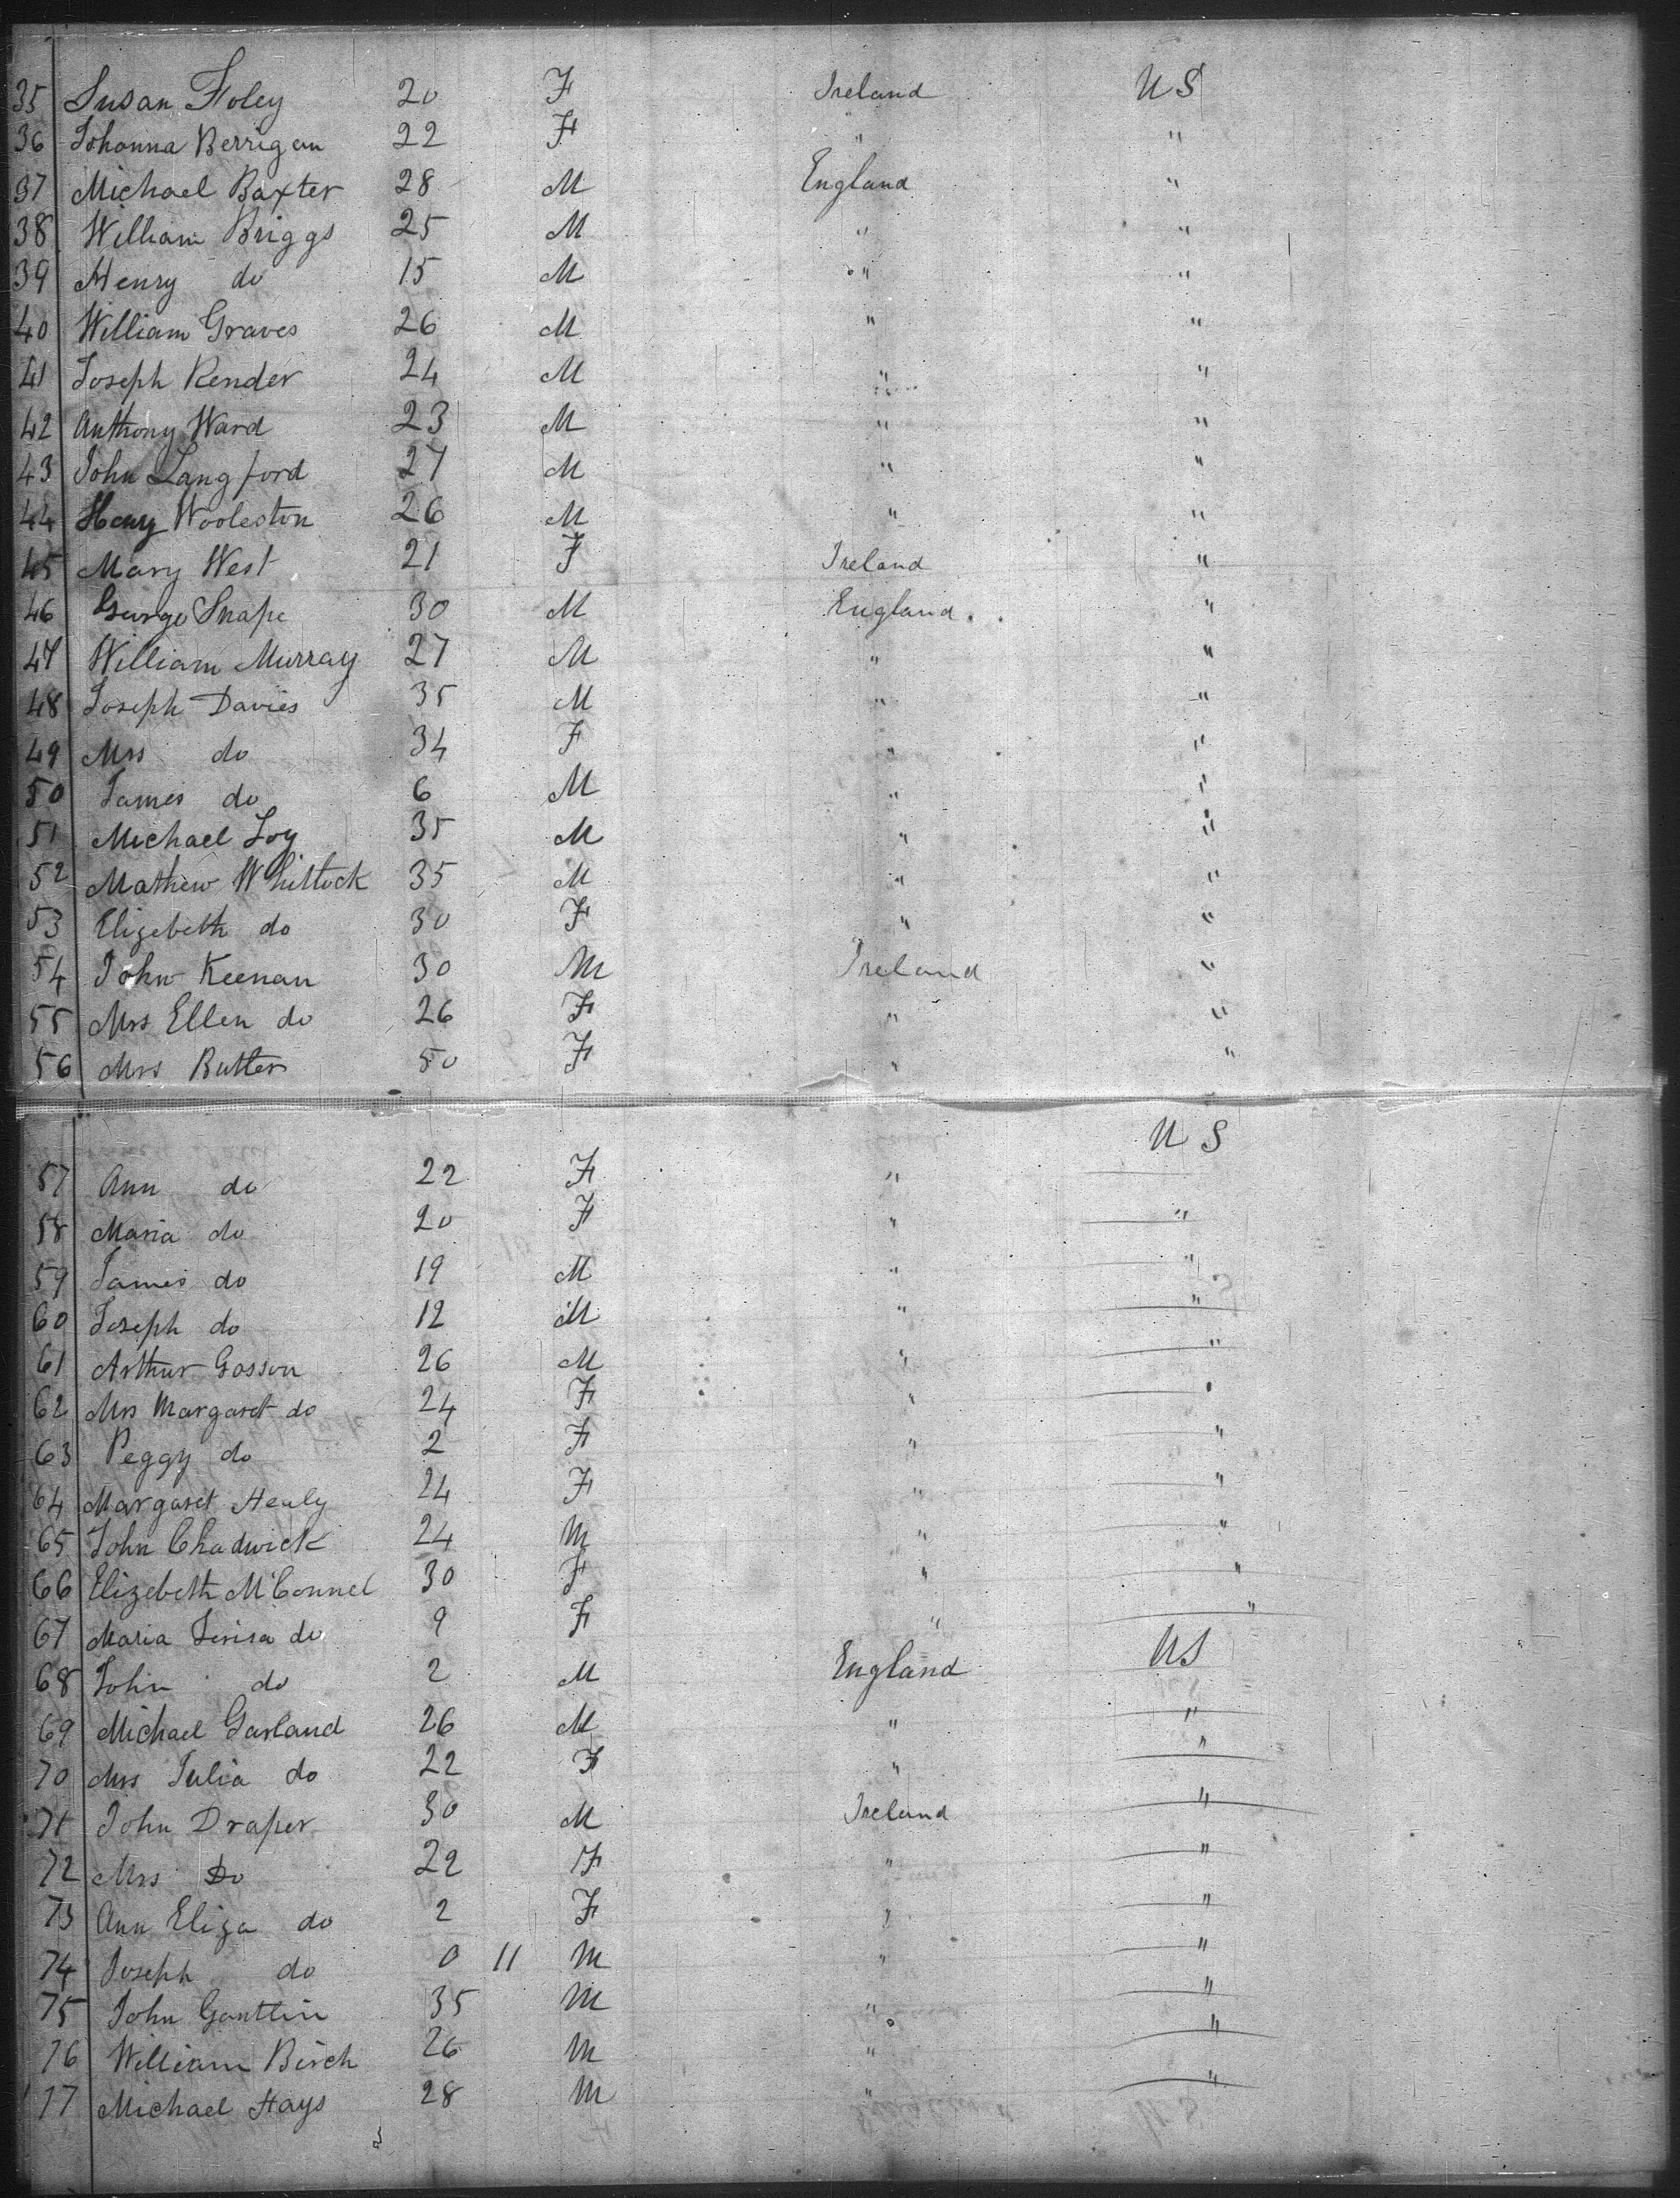 35 Susan Foley 20 F Ireland U S
36 Johanna Berrigan 22 F " "
37 Michael Baxter 28 M England "
38 William Briggs 25 M " "
39 Henry do 15 M " "
40 William Graves 26 M " "
41 Joseph Render 24 M " "
42 Anthony Ward 23 M " "
43 John Langford 27 M " "
44 Henry Wooleston 26 M " "
45 Mary West 21 F Ireland "
46 George Snape 30 M England "
47 William Murray 27 M " "
48 Joseph Davies 35 M " "
49 Mrs do 34 F " "
50 James do 6 M " "
51 Michael 35 M " "
52 Mathew Whittock 35 M " "
53 Elizebeth do 30 F " "
54 John Keenan 30 M Ireland "
55 Mrs Ellen do 26 F " "
56 Mrs Butter 50 F " "
U S
57 Ann do 22 F "
58 Maria do 20 F " "
59 James do 19 M " "
60 Joseph do 12 M " "
61 Arthur Gosson 26 M " "
62 Mrs Margaret do 24 F " "
63 Peggy do 2 F " "
64 Margaret Healy 24 F " "
65 John Chadwick 24 M " "
66 Elizebeth McConnel 30 F " "
67 Maria do 9 F " "
68 John do 2 M England US
69 Michael Garland 26 M " "
70 Mrs Julia do 22 F " "
71 John Draper 30 M Ireland "
72 Mrs Do 22 F " "
73 Ann Eliza do 2 F " "
74 Joseph do 0 11 M " "
75 John Gantlin 35 M " "
76 William Birch 26 M " "
77 Michael Hays 28 M " "